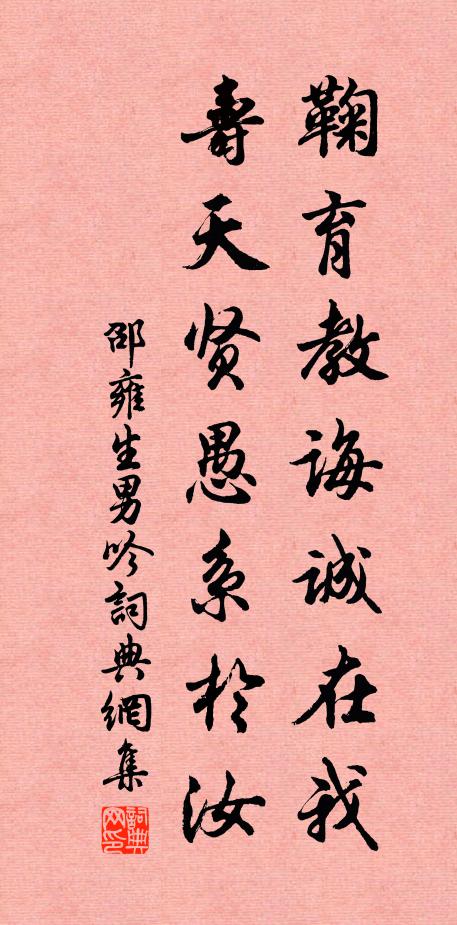 鞠育教誨誠在我
壽夭贤愚系於汝
邵雍生男吟詞典網集
詞典网印